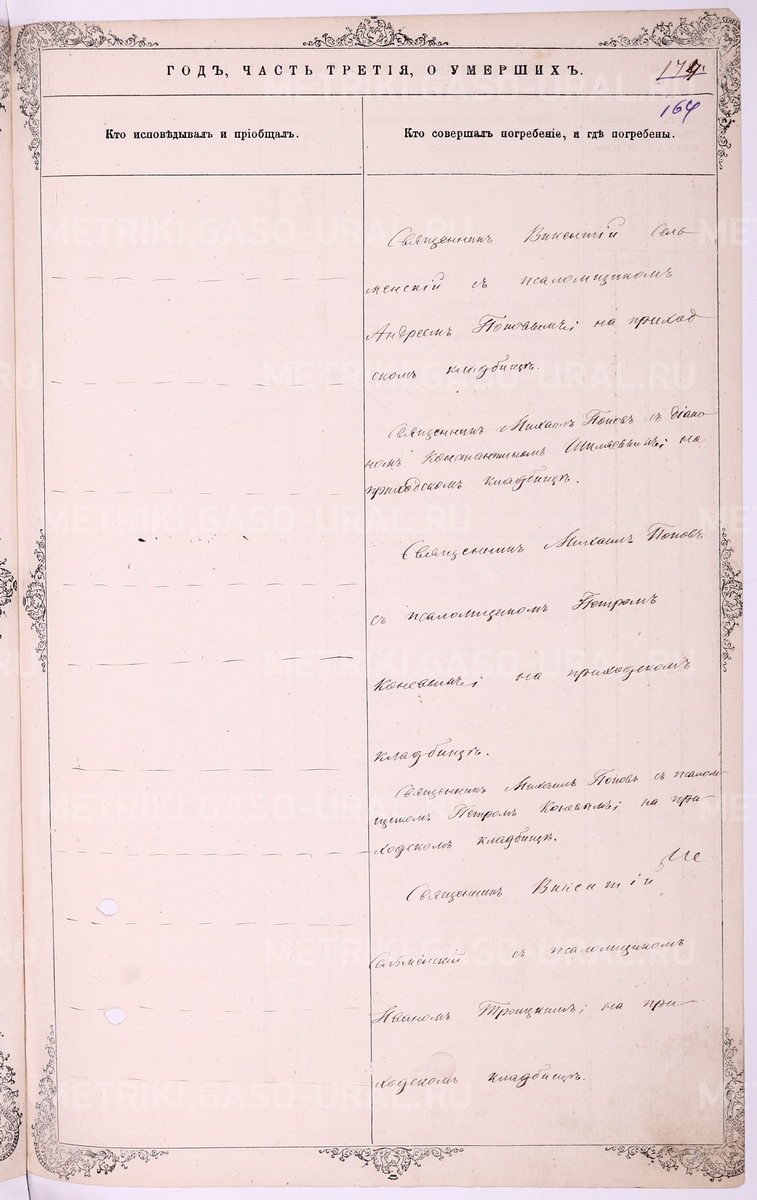 ГОДЪ, ЧАСТЬ ТРЕТІЯ, О УМЕРШИХЪ.
174.
164
Кто исповѣдывалъ и пріобщалъ.
Кто совершалъ погребеніе, и гдѣ погребены.
Священникъ Викентій Сель
менскій съ псаломщикомъ
Андреемъ Поповымъ; на приход
скомъ кладбищѣ.
Священникъ Михаилъ Поповъ съ діако
номъ Константиномъ Шиляевымъ; на
приходскомъ кладбищѣ.
Священникъ Михаилъ Поповъ
съ псаломщикомъ Петромъ
Коневымъ; на приходскомъ
кладбищѣ.
Священникъ Михаилъ Поповъ съ псалом
щикомъ Петромъ Коневымъ; на при
ходскомъ кладбищѣ.
Священникъ Викентій
Сельменскій съ псаломщикомъ
Иваномъ Троицкимъ; на при
ходскомъ кладбищѣ.
METRIKI.GASO-URAL.RU